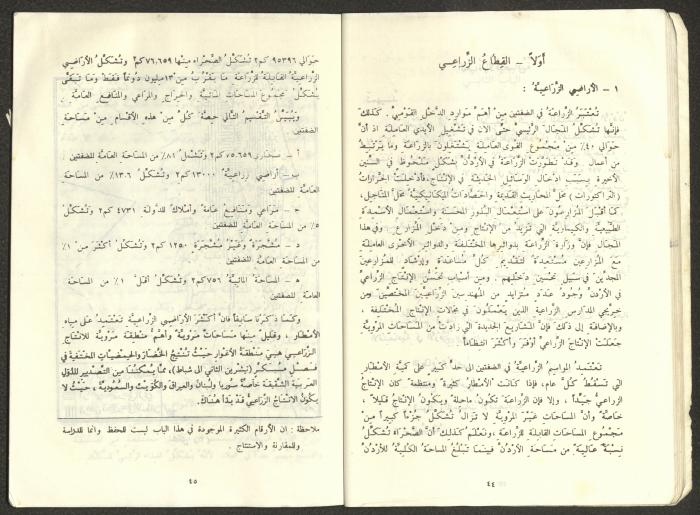 أولاً – القِطاعُ الزِّراعِي
١ – الأراضِي الزِّراعِيَّةُ :
تُعْتَبَرُ الزِّراعَةُ في الضفتين مِنْ أهَمِّ مَوارِدِ الدَّخْلِ القَوْمِيِّ . كَذلِكَ
فإنَّها تُشَكِّلُ المَجالَ الرَّئيسي حتّى الآن في تَشْغيلِ الأيدي العامِلَةِ اذ أنَّ
حَوالي ٤٠٪ مِنْ مَجْموعِ القُوى العامِلَةِ يَشْتَغِلونَ بالزِّراعَةِ وما يَرْتَبِطُ
من أعمالٍ . وقَدْ تَطَوَّرَتِ الزِّراعَةُ في الأردُنِّ بِشَكْلٍ مَلْحوظٍ في السِّنينِ
الأخيرةِ بِسَبَبِ ادخالِ الوَسائِلِ الحَديثَةِ في الإنْتاجِ. فأدْخِلَتْ الجَرّاراتُ
( التراكتورات ) مَحَلَّ المَحاريثِ القَديمَةِ والحَصّاداتُ الميكانيكيَّةُ مَحَلَّ المَناجِلِ،
كما أقْبَلَ المُزارِعونَ على اسْتِعْمالِ البُذورِ المُحَسَّنَةِ واسْتِعْمالِ الأسْمِدَةِ
الطَّبيعيَّةِ والكيماويَّةِ التي تَزيدُ من الإنْتاجِ ومِنْ دَخْلِ المُزارِعِ . وفي هذا
المَجالِ فإنَّ وزارةَ الزِّراعَةِ بدوائِرِها المُخْتَلِفَةِ والدوائِرِ الأخرى العامِلَةِ
مَعَ المُزارِعينَ مُسْتَعِدَّةٌ لِتَقْديمِ كُلِّ مُساعَدَةٍ وإرْشادٍ للمُزارِعينَ
المُجِدّينَ في سَبيلِ تَحْسينِ دَخْلِهِم . ومِنْ أسْبابِ تَحَسُّنِ الإنْتاجِ الزِّراعيِّ
في الأردُنِّ وُجودُ عَدَدٍ مُتَزايِدٍ مِنَ المُهَنْدِسينَ الزِّراعيّينَ المُخْتَصّينَ ومِن
خِرّيجي المَدارِسِ الزِّراعيةِ الذين يَعْمَلونَ في مَجالاتِ الإنْتاجِ المُخْتَلِفَةِ ،
وبالإضافَةِ إلى ذلكَ فإنَّ المَشاريعَ الجديدةَ التي زادَتْ مِنَ المساحاتِ المَرْوِيَّةِ
جَعَلَتْ الإنْتاجَ الزِّراعيَّ أوْفَرَ وأكْثَرَ انْتِظاماً .
تَعْتَمِدُ المواسِمُ الزِّراعيَّةُ في الضفتين الى حدٍّ كبيرٍ على كَمِّيَّةِ الأمْطارِ
التي تَسْقُطُ كُلَّ عامٍ، فإذا كانَتْ الأمطارُ كثيرةً ومنتظمةً كانَ الإنْتاجُ
الزراعيُّ جَيِّداً ، وإلا فإن الزِّراعَةَ تَكونُ ماحِلَةً ويكونُ الإنْتاجُ قَليلاً ،
خاصَّةً وأنَّ المساحاتِ غَيْرَ المَرْوِيَّةِ لا تَزالُ تُشَكِّلُ جُزْءاً كبيراً مِنْ
مَجْموعِ المساحاتِ القابِلَةِ للزِّراعَةِ ، ونَعْلَمُ كذلِكَ أنَّ الصَّحْراءَ تُشَكِّلُ
نِسْبَةً عالِيَةً من مَساحَةِ الأردُنِّ فبينَما تَبْلُغُ المساحَةُ الكُلِّيَّةُ للأردُنِّ
٤٤
حَوالي ٩٥٣٩٦ كم٢ تُشَكِّلُ الصَّحْراءُ مِنْها ٧٦،٦٥٩ كم٢ وتُشَكِّلُ الأراضي
الزِّراعِيَّةُ القابِلَةُ للزِّراعَةِ ما يَقْرُبُ مِنْ ١٣ مليون دُونُماً فَقَطْ وما تَبَقّى
يُشَكِّلُ مَجْموعَ المساحاتِ المائيَّةِ والحِراجِ والمَراعي والمَنافِعِ العامَّةِ .
ويُبَيِّنُ التَّقْسيمُ التّالي حِصَّةَ كُلٍّ مِنْ هذِهِ الأقْسامِ مِنْ مَساحَةِ
الضفتين
أ – صَحاري ٧٥،٦٥٩ كم٢ وتَشْمَلُ ٨١٪ من المساحَةِ العامَّةِ للضفتين .
ب – أراضي زراعيَّة ١٣٠٠٠ كم٢ وتُشَكِّلُ ١٣،٦٪ من المساحَةِ
العامَّةِ للضفتين
ج – مَراعي ومَنافِع عامَّة وأمْلاك للدولَةِ ٤٧٣١ كم٢ وتُشَكِّلُ
٥٪ من المساحَةِ العامَّةِ للضفتين
د – مُشَجَّرَة وغَيْرُ مُشَجَّرَة ١٢٥٠ كم٢ وتُشَكِّلُ أكْثَرَ مِنْ ١٪
من المساحَةِ العامَّةِ للضفتين
ه – المساحَةُ المائيَّةُ ٧٥٦ كم٢ وتُشَكِّلُ أقلَّ ١٪ من المساحَةِ
العامة للضفتين
وكَما ذَكَرْنا سابقاً فإنَّ أكْثَرَ الأراضي الزِّراعيَّةِ تَعْتَمِدُ على مِياهِ
الأمْطارِ ، وقليلٌ مِنْها مَساحاتٌ مَرْوِيَّةٌ وأهَمُّ مَنْطِقَةٍ مَرْوِيَّةٍ للانْتاجِ
الزِّراعي هِيَ مَنْطِقَةُ الأغْوارِ حَيْثُ تُنْتِجُ الخُضارَ والحِمْضِيّاتِ المُخْتَلِفَةَ في
فَصْلٍ مُبَكِّرٍ (تِشْرين الثاني الى شباط)، مِمّا يُمَكِّنُنا مِنَ التَّصْديرِ للدُّوَلِ
العَرَبيَّةِ الشَّقيقَةِ خاصَّةً سُوريا ولُبْنان والعِراق والكُوَيْت والسُّعوديَّة ، حَيْثُ لا
يَكونُ الانْتاجُ الزِّراعِيُّ قَدْ بَدَأَ هُناكَ.
ملاحظة : ان الأرقام الكثيرة الموجودة في هذا الباب ليست للحفظ وانما للدراسة
وللمقارنة والاستنتاج .
٤٥